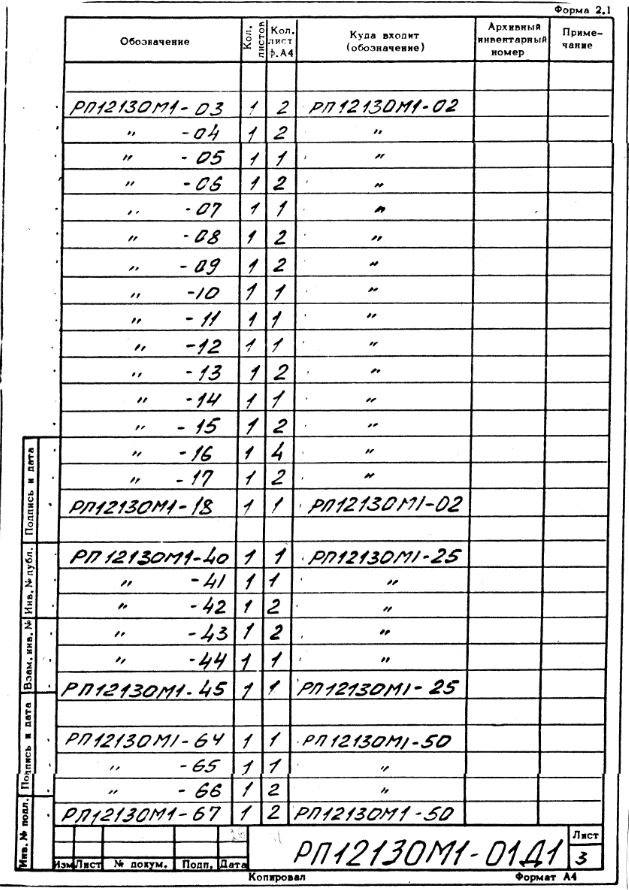 Форма 2.1
Обозначение Кол. листов Кол. лист ф.А4 Куда входит (обозначение) Архивный инвентарный номер Примечание
РП12130М1-03 1 2 РП12130М1-02
" -04 1 2 "
" -05 1 1 "
" -06 1 2 "
" -07 1 1 "
" -08 1 2 "
" -09 1 2 "
" -10 1 1 "
" -11 1 1 "
" -12 1 1 "
" -13 1 2 "
" -14 1 1 "
" -15 1 2 "
" -16 1 4 "
" -17 1 2 "
РП12130М1-18 1 1 РП12130М1-02
РП12130М1-40 1 1 РП12130М1-25
" -41 1 1 "
" -42 1 2 "
" -43 1 2 "
" -44 1 1 "
РП12130М1-45 1 1 РП12130М1-25
РП12130М1-64 1 1 РП12130М1-50
" -65 1 1 "
" -66 1 2 "
РП12130М1-67 1 2 РП12130М1-50
Подпись и дата
Инв. № дубл.
Взам. инв. №
Подпись и дата
Инв. № подл.
Изм Лист № докум. Подп. Дата
РП12130М1-01Д1
Лист
3
Копировал Формат А4